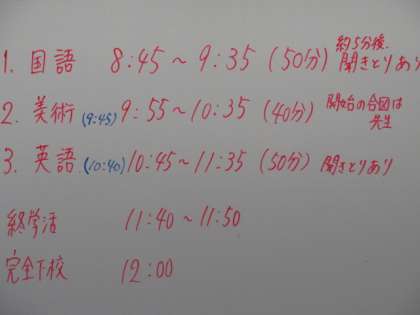 1. 国語 8:45 ~ 9:35 (50分) 約5分後. 聞きとりあり
2. 美術 (9:45) 9:55 ~ 10:35 (40分) 開始の合図は先生
3. 英語 (10:40) 10:45 ~ 11:35 (50分) 聞きとりあり
終学活 11:40 ~ 11:50
完全下校 12:00